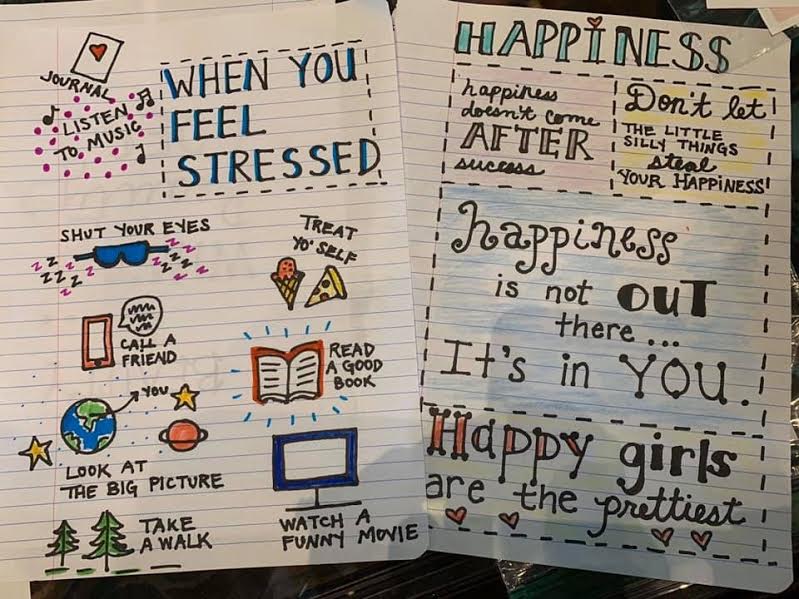 JOURNAL
LISTEN
TO MUSIC
WHEN YOU
FEEL
STRESSED
SHUT YOUR EYES
z z z z z z z z z z z z
TREAT
YO' SELF
CALL A
FRIEND
READ
A GOOD
BOOK
YOU
LOOK AT
THE BIG PICTURE
TAKE
A WALK
WATCH A
FUNNY MOVIE
HAPPINESS
happiness
doesn't come
AFTER
success
Don't let
THE LITTLE
SILLY THINGS
steal
YOUR HAPPINESS!
happiness
is not OUT
there...
It's in YOU.
Happy girls
are the prettiest